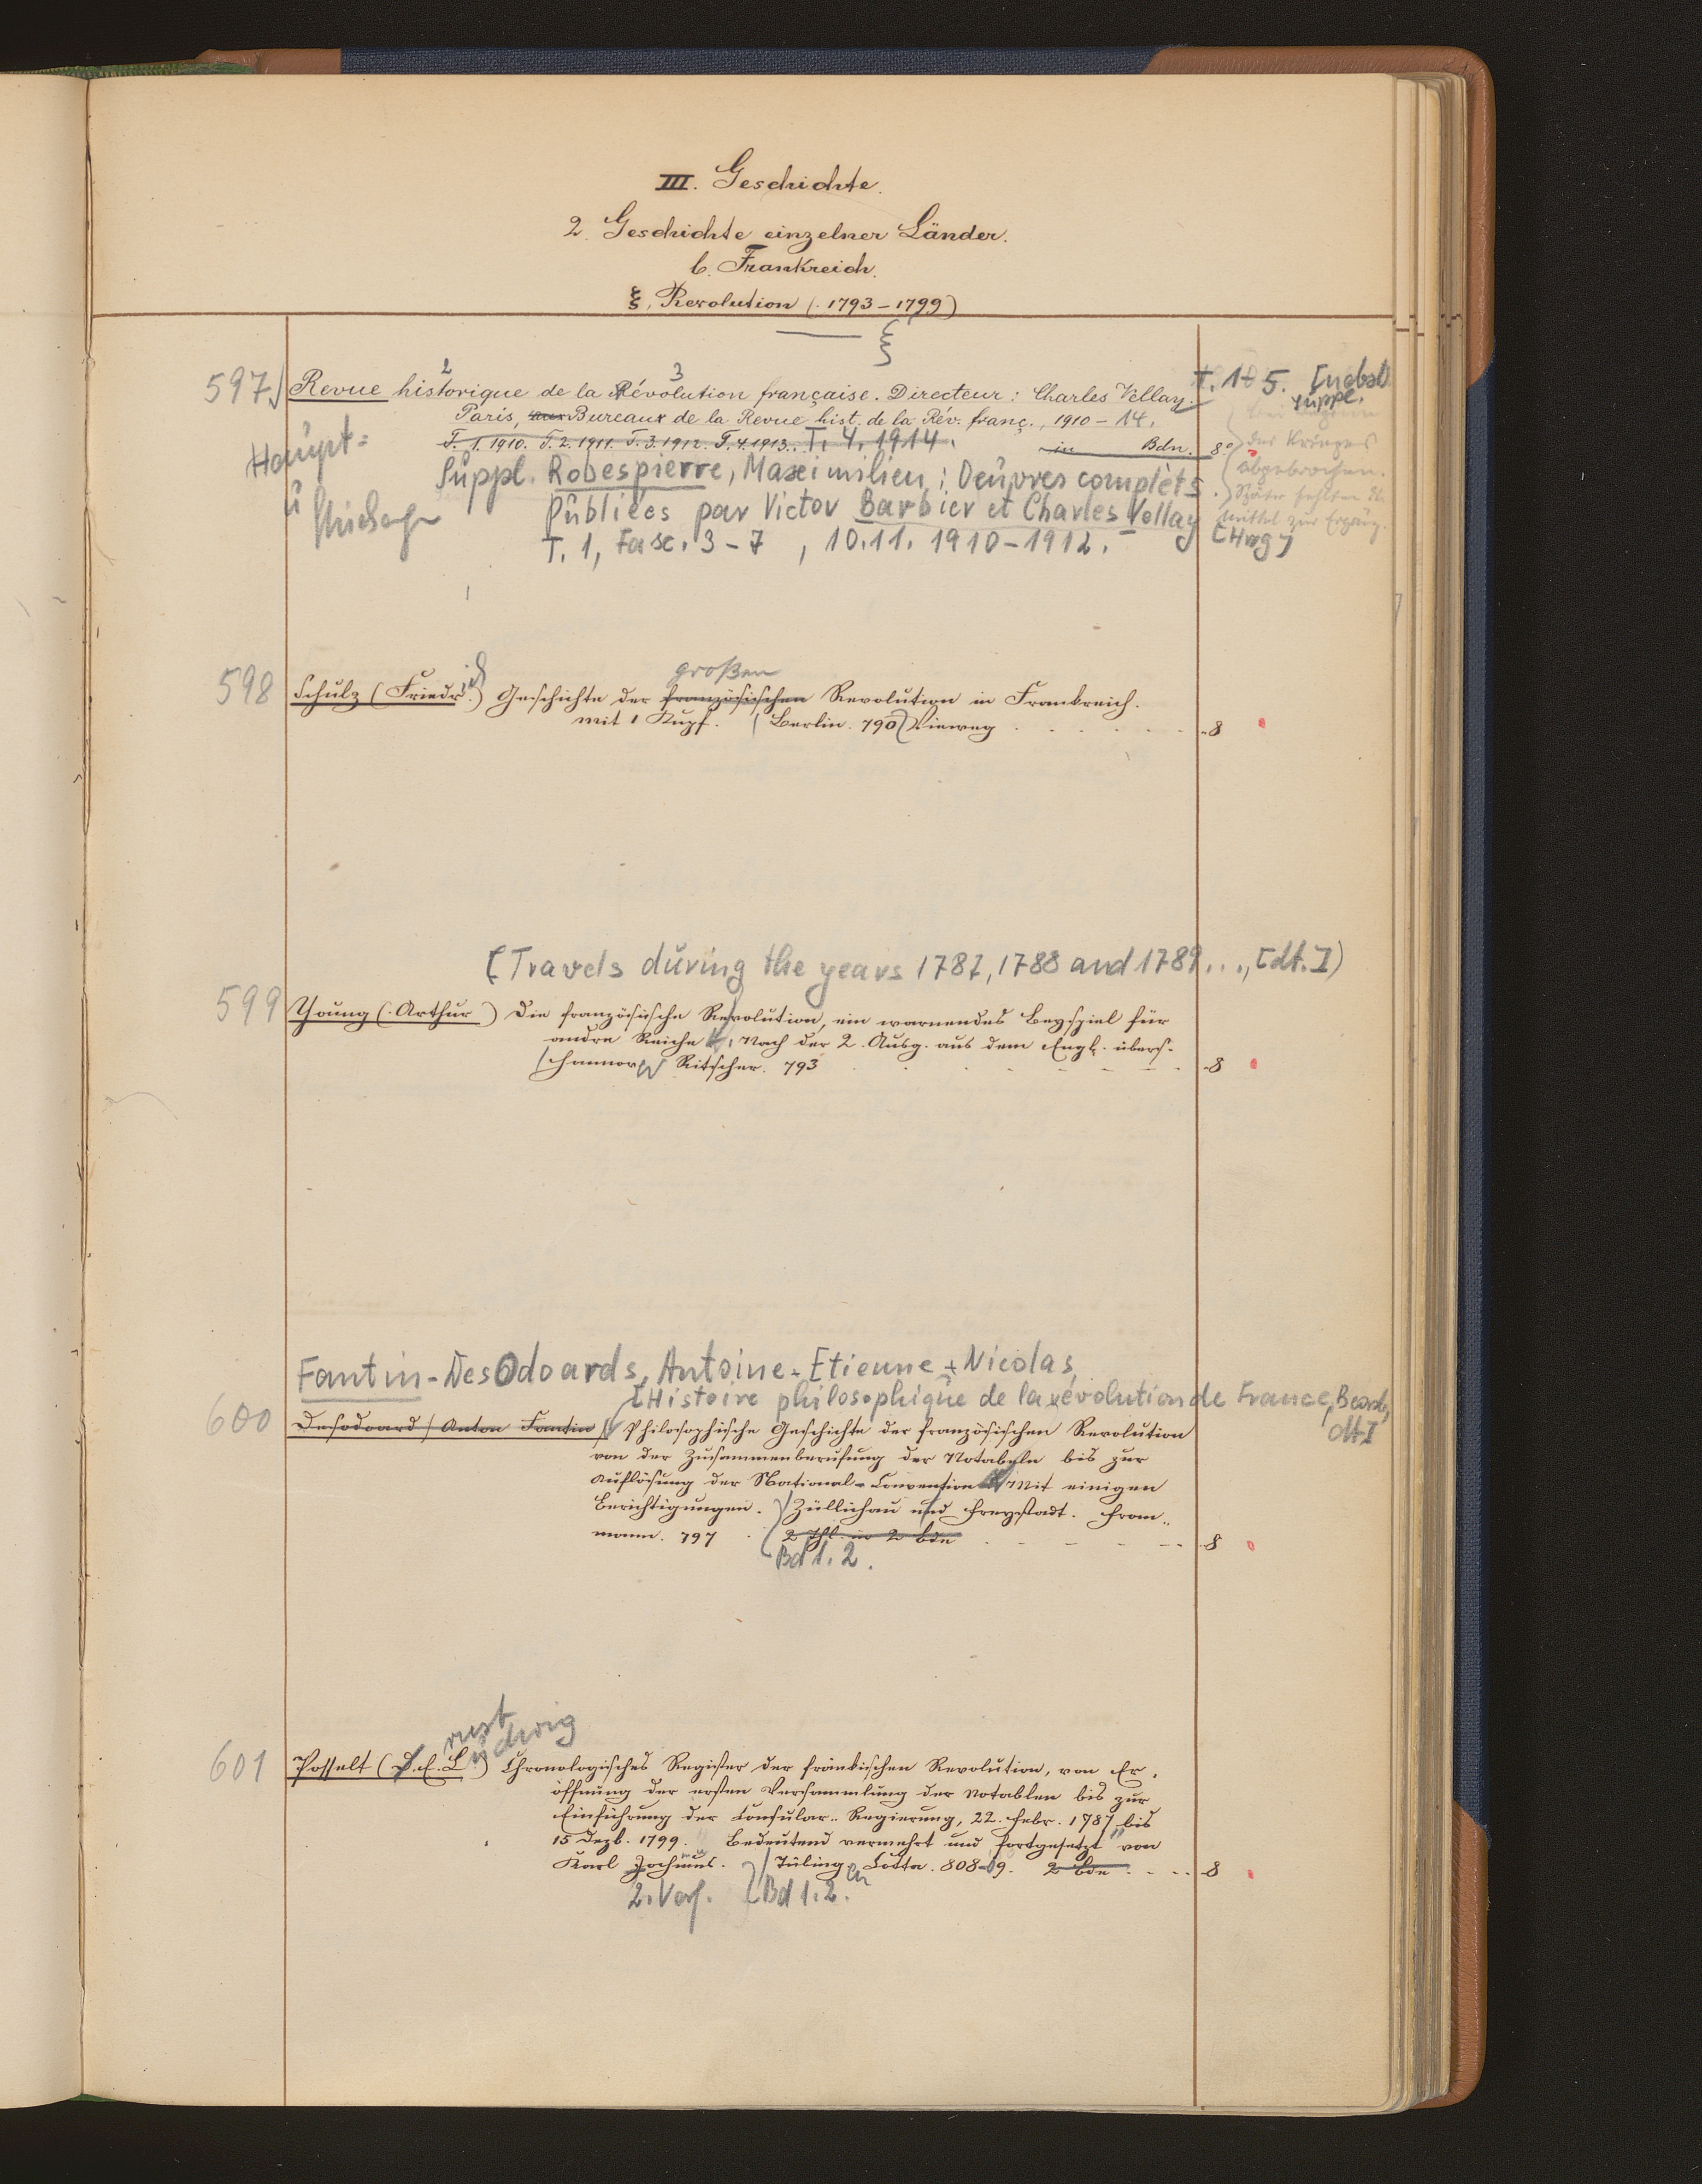 III. Geschichte.
2. Geschichte einzelner Länder.
b. Frankreich.
ξ. Revolution (1793–1799)
ξ
597.) Revue historique de la Révolution française. Directeur: Charles Vellay.
2 3
T. 1–5. [nebst
Suppl.
Paris, aux Bureaux de la Revue hist. de la Rév. franç., 1910–14.
T. 1. 1910. T. 2. 1911. T. 3. 1912. T. 4. 1913. T. 4. 1914. in Bdn. 8°
Haupt-
u
Suppl. Robespierre, Maximilien: Oeuvres complèts
Publiées par Victor Barbier et Charles Vellay
T. 1, Fasc. 3–7, 10.11. 1910–1912.
des Krieges
abgebrochen.
Später fehlten die
Mittel zur Ergänz.
großen
598 Schulz (Friedrich) Geschichte der französischen Revolution in Frankreich.
mit 1 Kupf. (Berlin. 790) Vieweg . . . . . 8
(Travels during the years 1787, 1788 and 1789..., [dt.])
599 Young (Arthur) Die französische Revolution, ein warnendes Beyspiel für
andre Reiche. Nach der 2. Ausg. aus dem Engl. übers.
Hannover Ritscher. 793 8
Fantin-DesOdoards, Antoine-Etienne-Nicolas,
[Histoire philosophique de la révolution de France, Bearb.,
dt.]
600 Desodoard (Anton Fantin) Philosophische Geschichte der französischen Revolution
von der Zusammenberufung der Notabeln bis zur
Auflösung der National-Convention Mit einigen
Berichtigungen. Züllichau und Freystadt. From-
mann. 797 2 Thl. in 2 Bdn 8
Bd 1.2.
rnst
udwig
601 Posselt (D. E. L.) Chronologisches Register der fränkischen Revolution, von Er-
öffnung der ersten Versammlung der Notablen bis zur
Einführung der Consular-Regierung, 22. Febr. 1787 bis
15 Dezb. 1799. Bedeutend vermehrt und fortgesetzt von
Karl Jochmus. Tübingen Cotta. 808–09. 2 Bde 8
2. Verf. Bd 1.2.